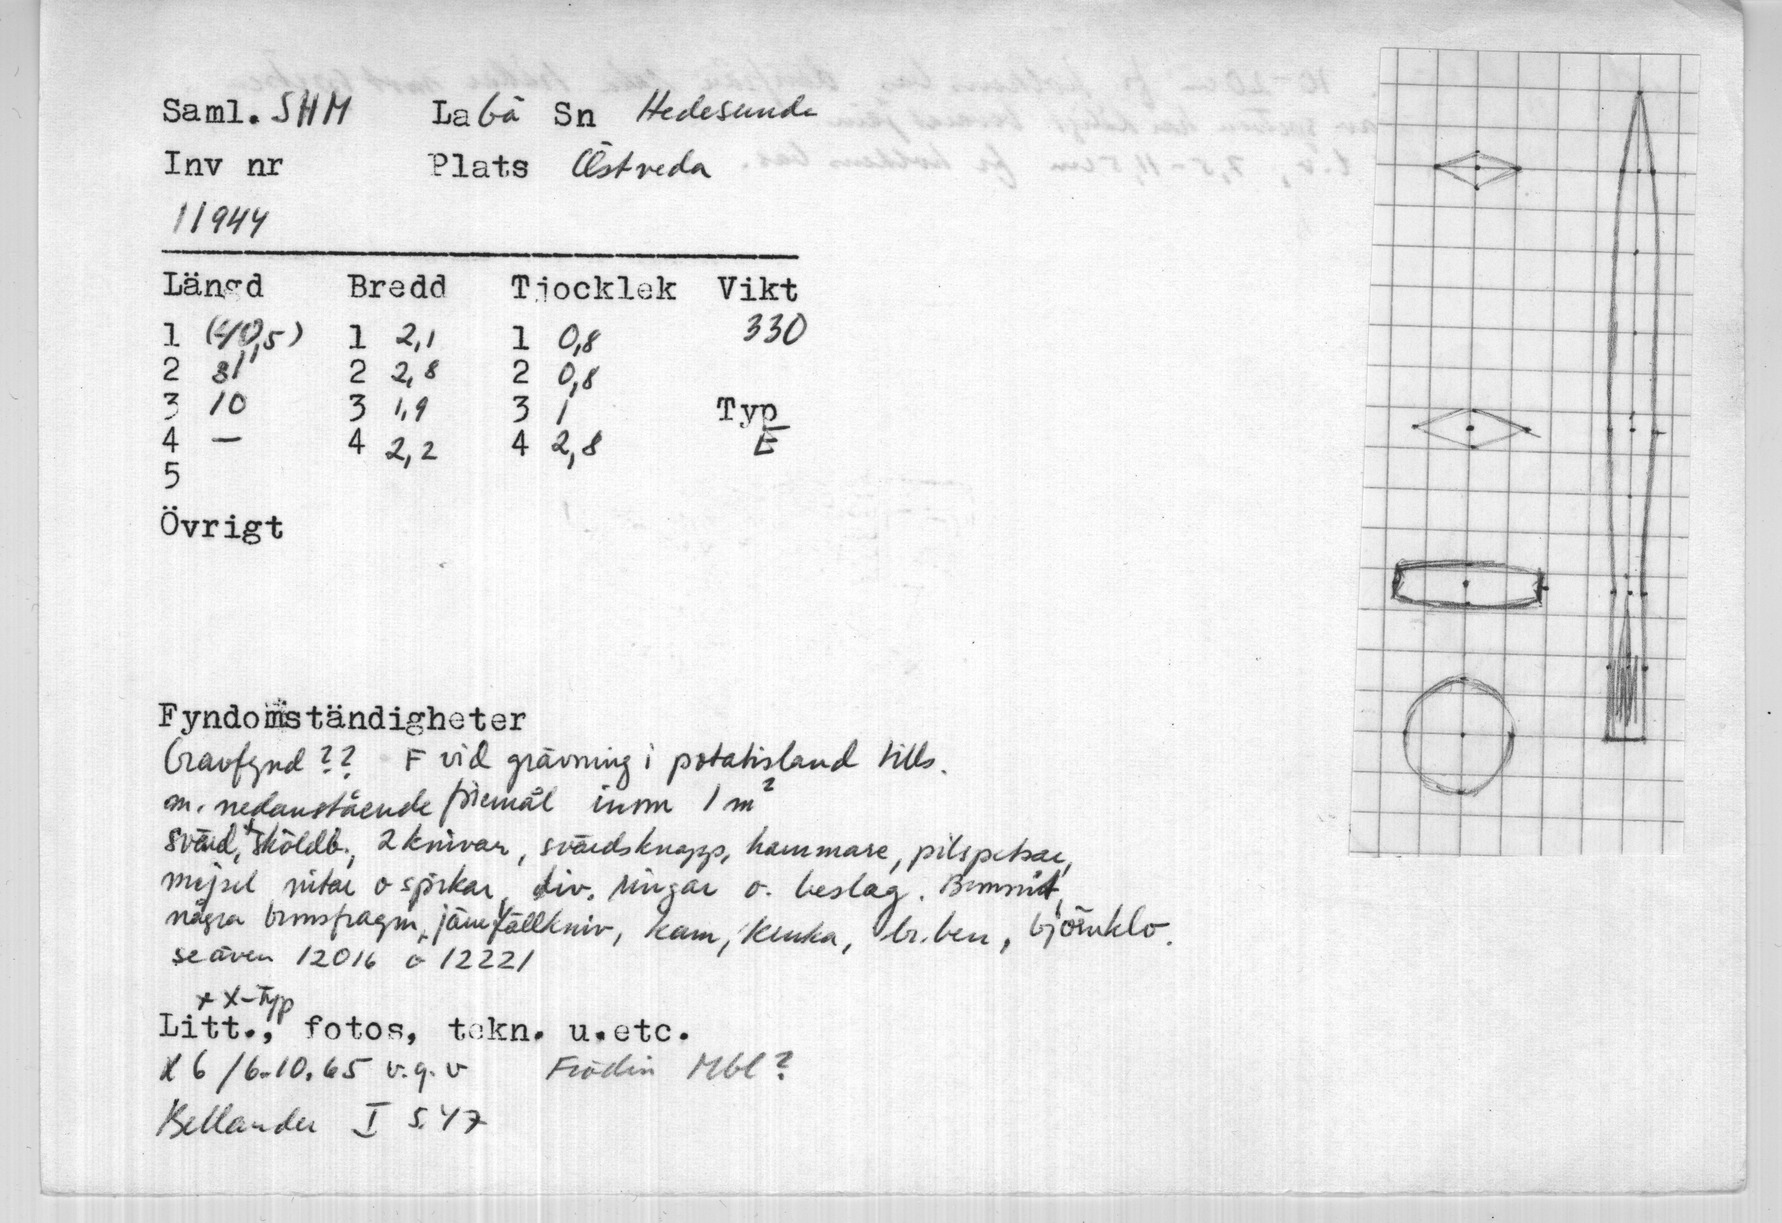 Saml. SHM La bä Sn Hedesunda
Inv nr Plats Östveda
11944
Längd Bredd Tjocklek Vikt
1 (40,5) 1 2,1 1 0,8 330
2 31 2 2,8 2 0,8
3 10 3 1,9 3 1 Typ
4 — 4 2,2 4 2,8 E
5
Övrigt
Fyndomständigheter
Gravfynd?? F vid grävning i potatisland tills.
m. nedanstående föremål inom 1 m²
svärd,+ sköldb., 2 knivar, svärdsknapp, hammare, pilspetsar,
mejsel nitar o spikar, div. ringar o. beslag.
några bronsfragm, järn fällkniv, kam, kruka, br. ben, björnklo.
se även 12016 o 12221
+ X-Typ
Litt., fotos, tekn. u.etc.
X 6 /6.10.65 v.g.v Frödin Mbl?
Bellander I s. 47